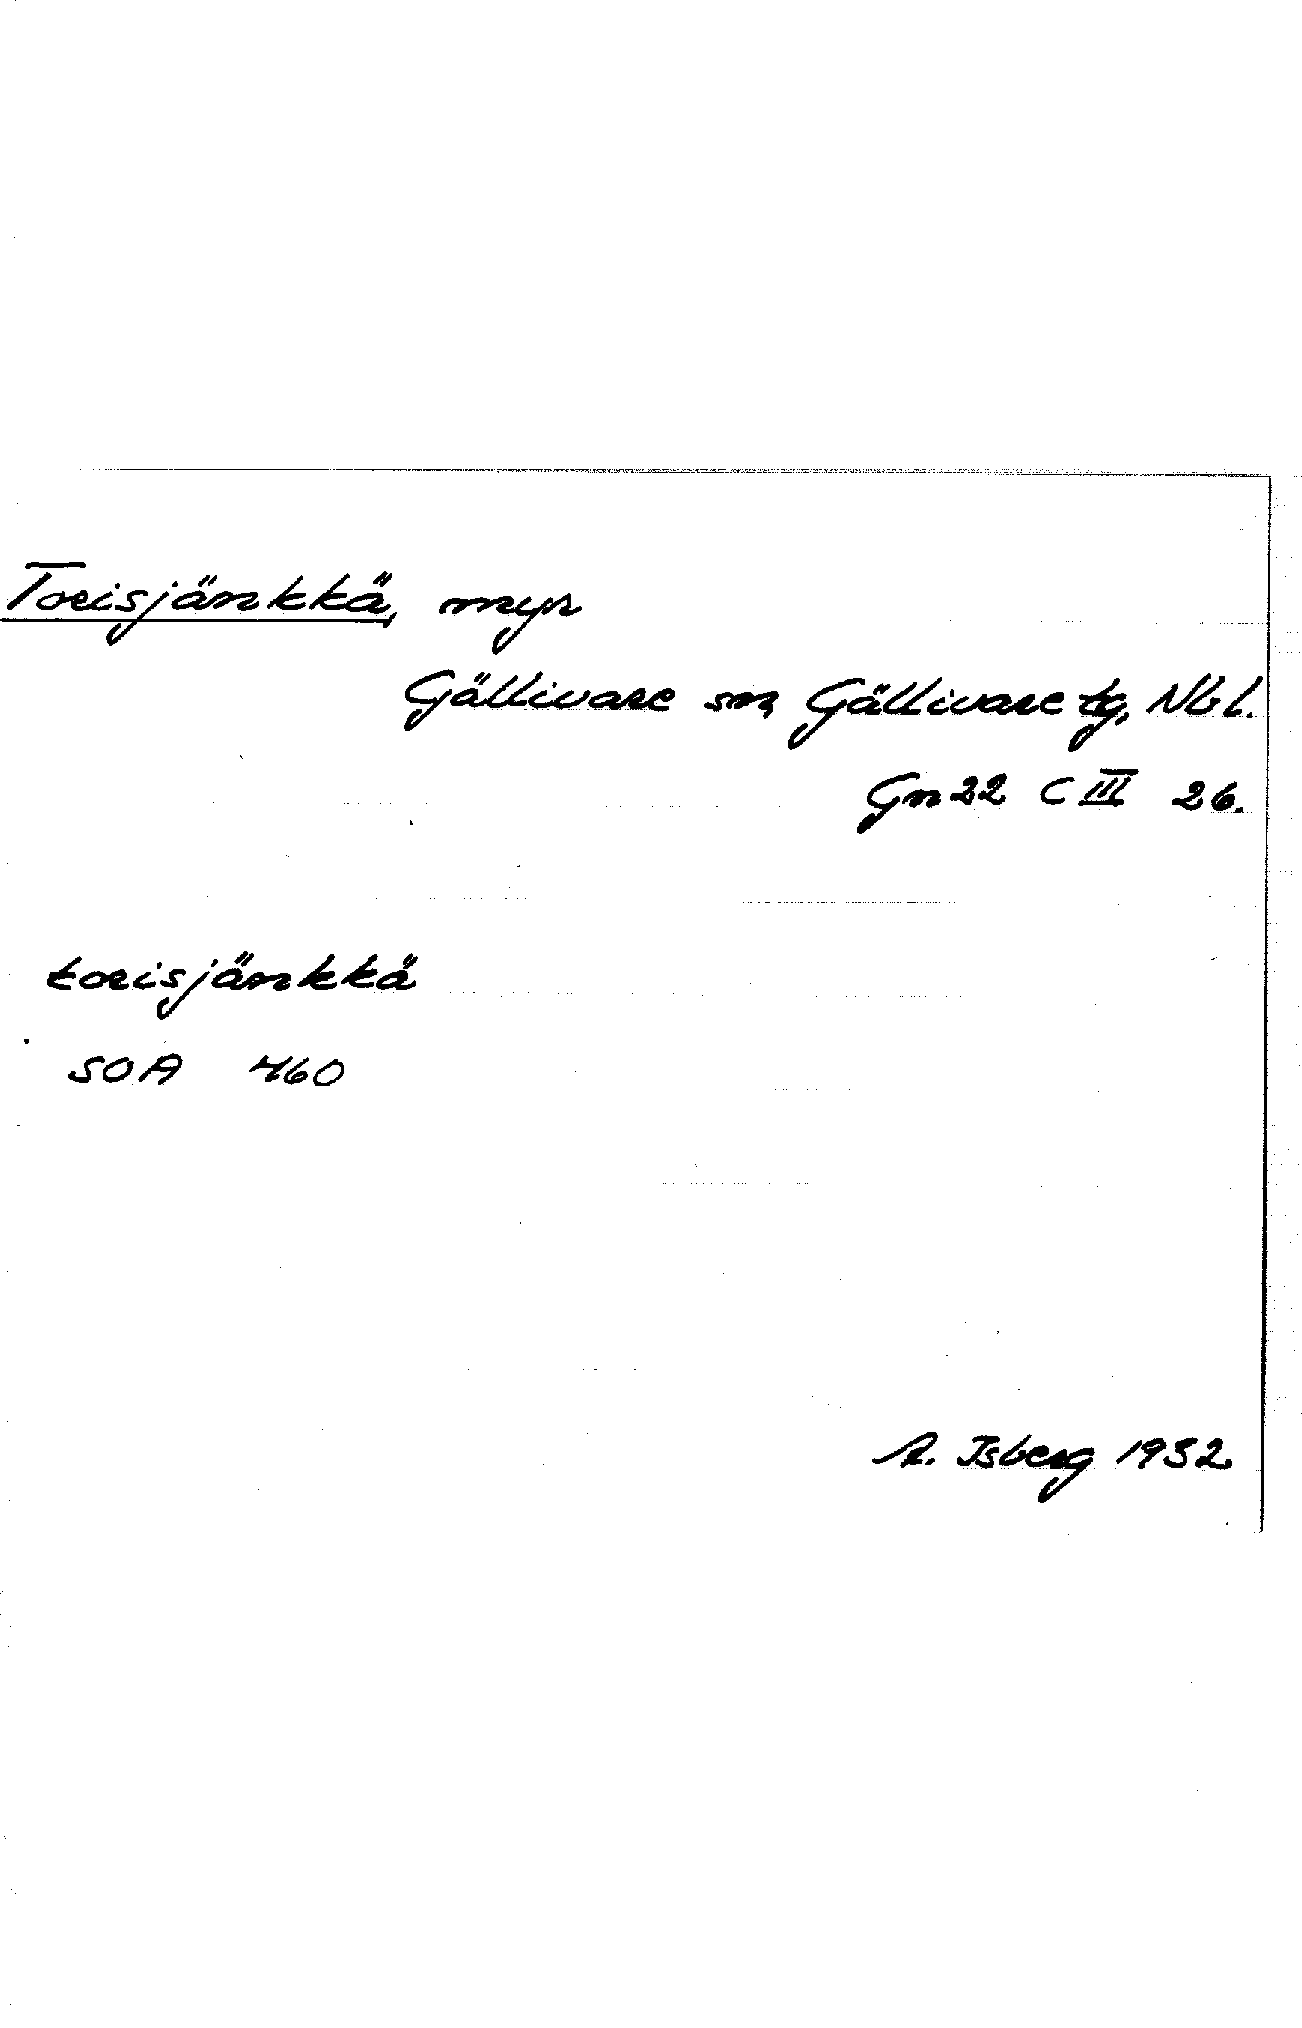 Torisjänkkä, myr
Gällivare sn, Gällivare tg, Nbl.
Gn 22 C III 26.
torisjänkkä
SOA 460
A. Isberg 1932